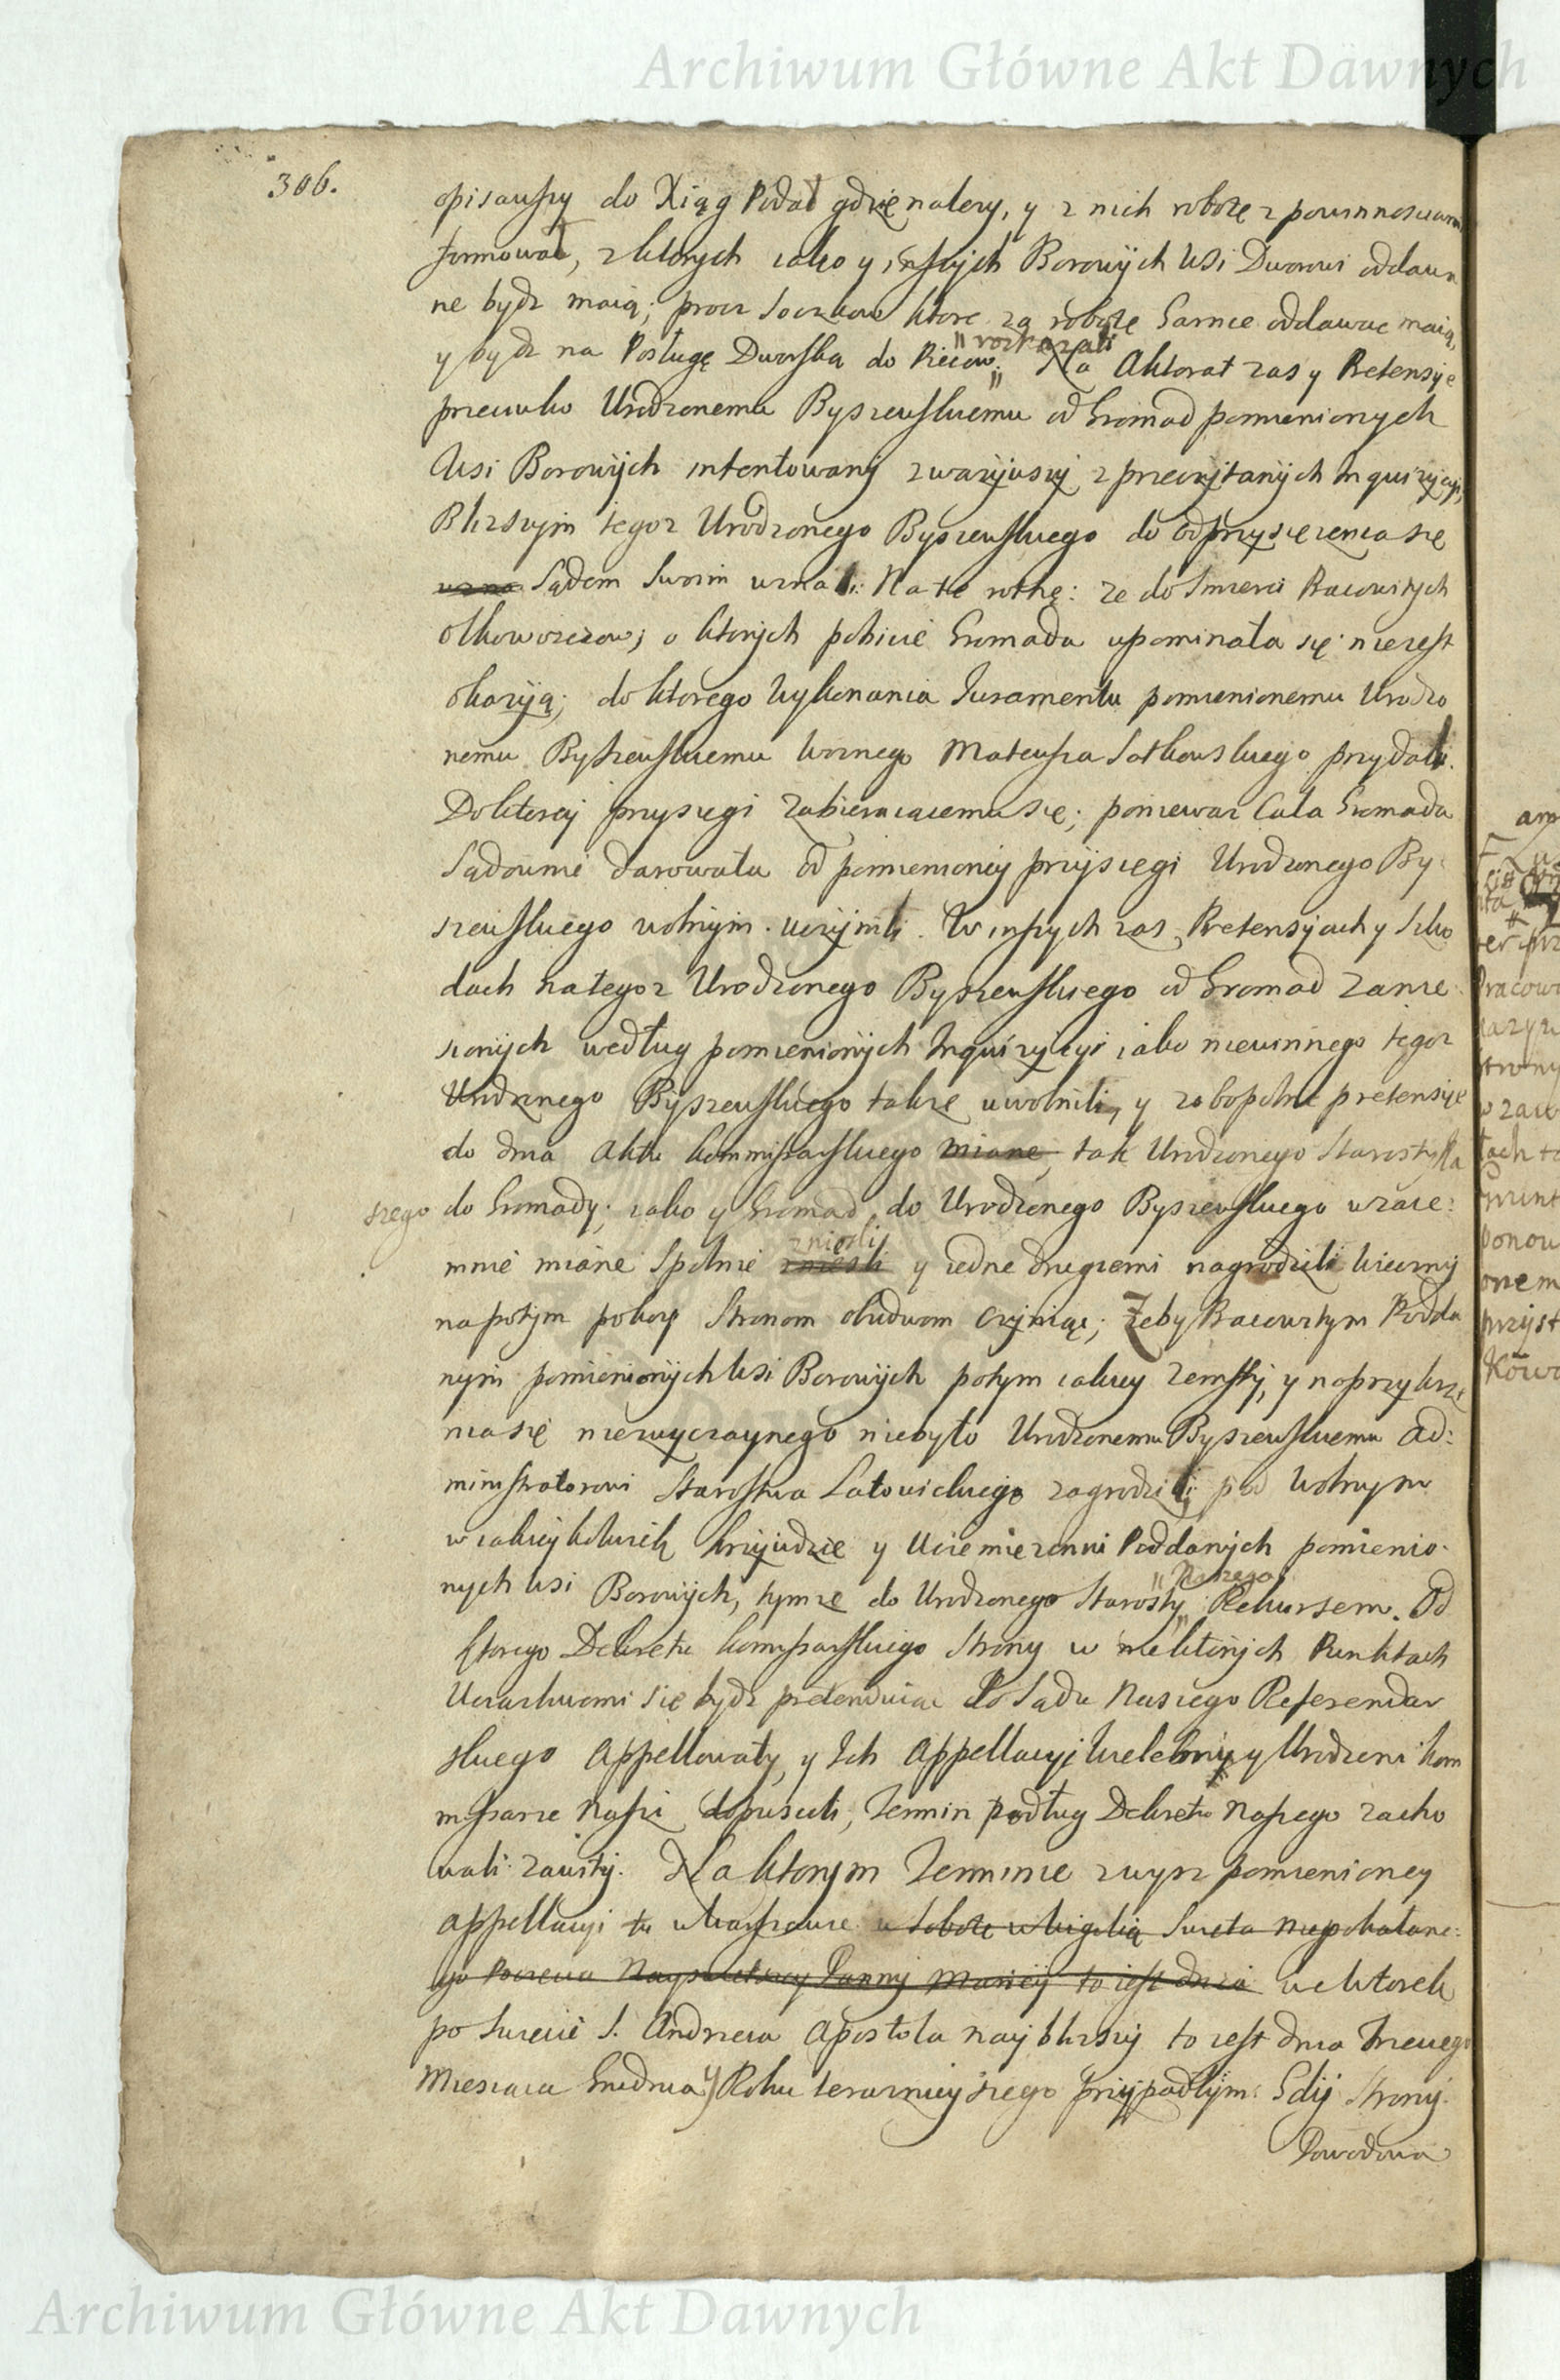 Archiwum Główne Akt Dawnych
306.
opisawszy do Xiąg Podał gdzie nalezy, y z nich robotę z powinnosciami
formował, z ktorych iako y inszych Borowych Wsi Dworowi oddawa
ne bydz maią; procz Soczkow ktore za robotę Garnce oddawac maią,
y bydz na Posługę Dworską do Piecow. "rozkazali" Na Aktorat zas y Pretensye
przeciwko Urodzonemu Byszewskiemu od Gromad pomienionych
Wsi Borowych intentowany zwazywszy z przeczytanych Inquizycyi,
Blizszym tegoz Urodzonego Byszewskiego do odprzysięzenia się
uzna Sądem Swoim uznali: Na te rothę: ze do Smierci Pracowitych
Olkoworzcow; o ktorych pobicie Gromada upominała się nie iest
okazyą; do ktorego Wykonania Juramentu pomienionemu Urodzo
nemu Byszewskiemu Woznego Mateusza Sotkowskiego przydali.
Do ktorey przysięgi Zabieraiącemu się; poniewaz Cała Gromada
Sądownie darowała od pomienioney przysięgi Urodzonego By:
szewskiego wolnym uczynili. W inszych zas Pretensyach y Szko
dach na tegoz Urodzonego Byszewskiego od Gromad zanie
sionych według pomienionych Inquizycyi iako niewinnego tegoz
Urodzonego Byszewskiego takze uwolnili, y zobopolne pretensye
do dnia Aktu Kommissarskiego miane, tak Urodzonego Starosty Na
szego do Gromady; iako y Gromad do Urodzonego Byszewskiego wzaie:
mnie miane Spolnie znieśli znieśli y iedne drugiemi nagrodzili wieczny
napotym pokoy Stronom obudwom czyniąc; Zeby Pracowitym Podda
nym pomienionych Wsi Borowych potym iakiey zemsty, y naprzykrze
nia się niezwyczaynego niebyło Urodzonemu Byszewskiemu Ad:
ministratorowi Starostwa Latowickiego zagrodzili; pod Wolnym
w iakieykolwiek krzywdzie y Uciemięzeniu Poddanych pomienio
nych Wsi Borowych, tymze do Urodzonego Starosty "Naszego" Rekursem. Od
ktorego Dekretu Kommissarskiego Strony w niektorych Punktach
Uciązliwemi się bydz pretenduiąc Do Sądu Naszego Referendar
skiego Appellowały, y Ich Appellacyi Wielebny y Urodzeni Kom
missarze Nasi dopuscili, Termin podług Dekretu Naszego zacho
wali zawity. Na ktorym Terminie z wysz pomienioney
appellacyi tu w Warszawie w Sobotę w Wigilią Swięta Niepokalane:
go Poczęcia Nayswiętszey Panny Maryey to iest dnia we Wtorek
po Swięcie S. Andrzeia Apostoła nayblizszy to iest dnia Trzeciego
Miesiąca Grudnia y Roku teraznieyszego przypadłym. Gdy Strony
Powodowa
Archiwum Główne Akt Dawnych